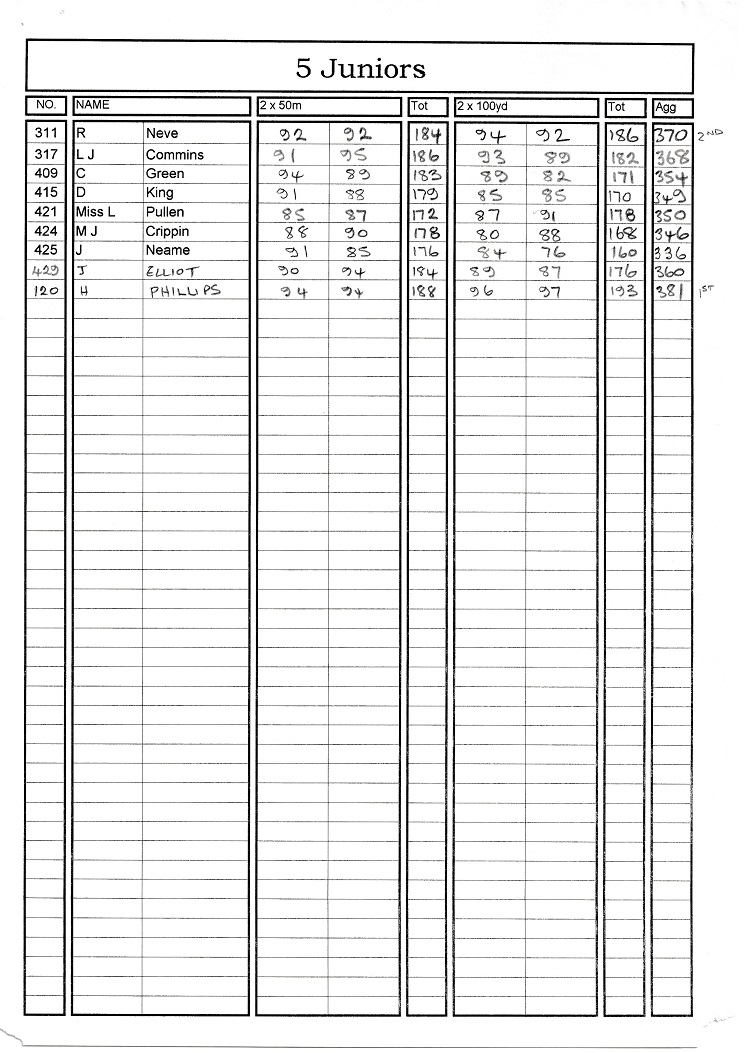 5 Juniors
NO. NAME 2 x 50m Tot 2 x 100yd Tot Agg
311 R Neve 92 92 184 94 92 186 370 2ND
317 L J Commins 91 95 186 93 89 182 368
409 C Green 94 89 183 89 82 171 354
415 D King 91 88 179 85 85 170 349
421 Miss L Pullen 85 87 172 87 91 178 350
424 M J Crippin 88 90 178 80 88 168 346
425 J Neame 91 85 176 84 76 160 336
429 J ELLIOT 90 94 184 89 87 176 360
120 H PHILLIPS 94 94 188 96 97 193 381 1ST